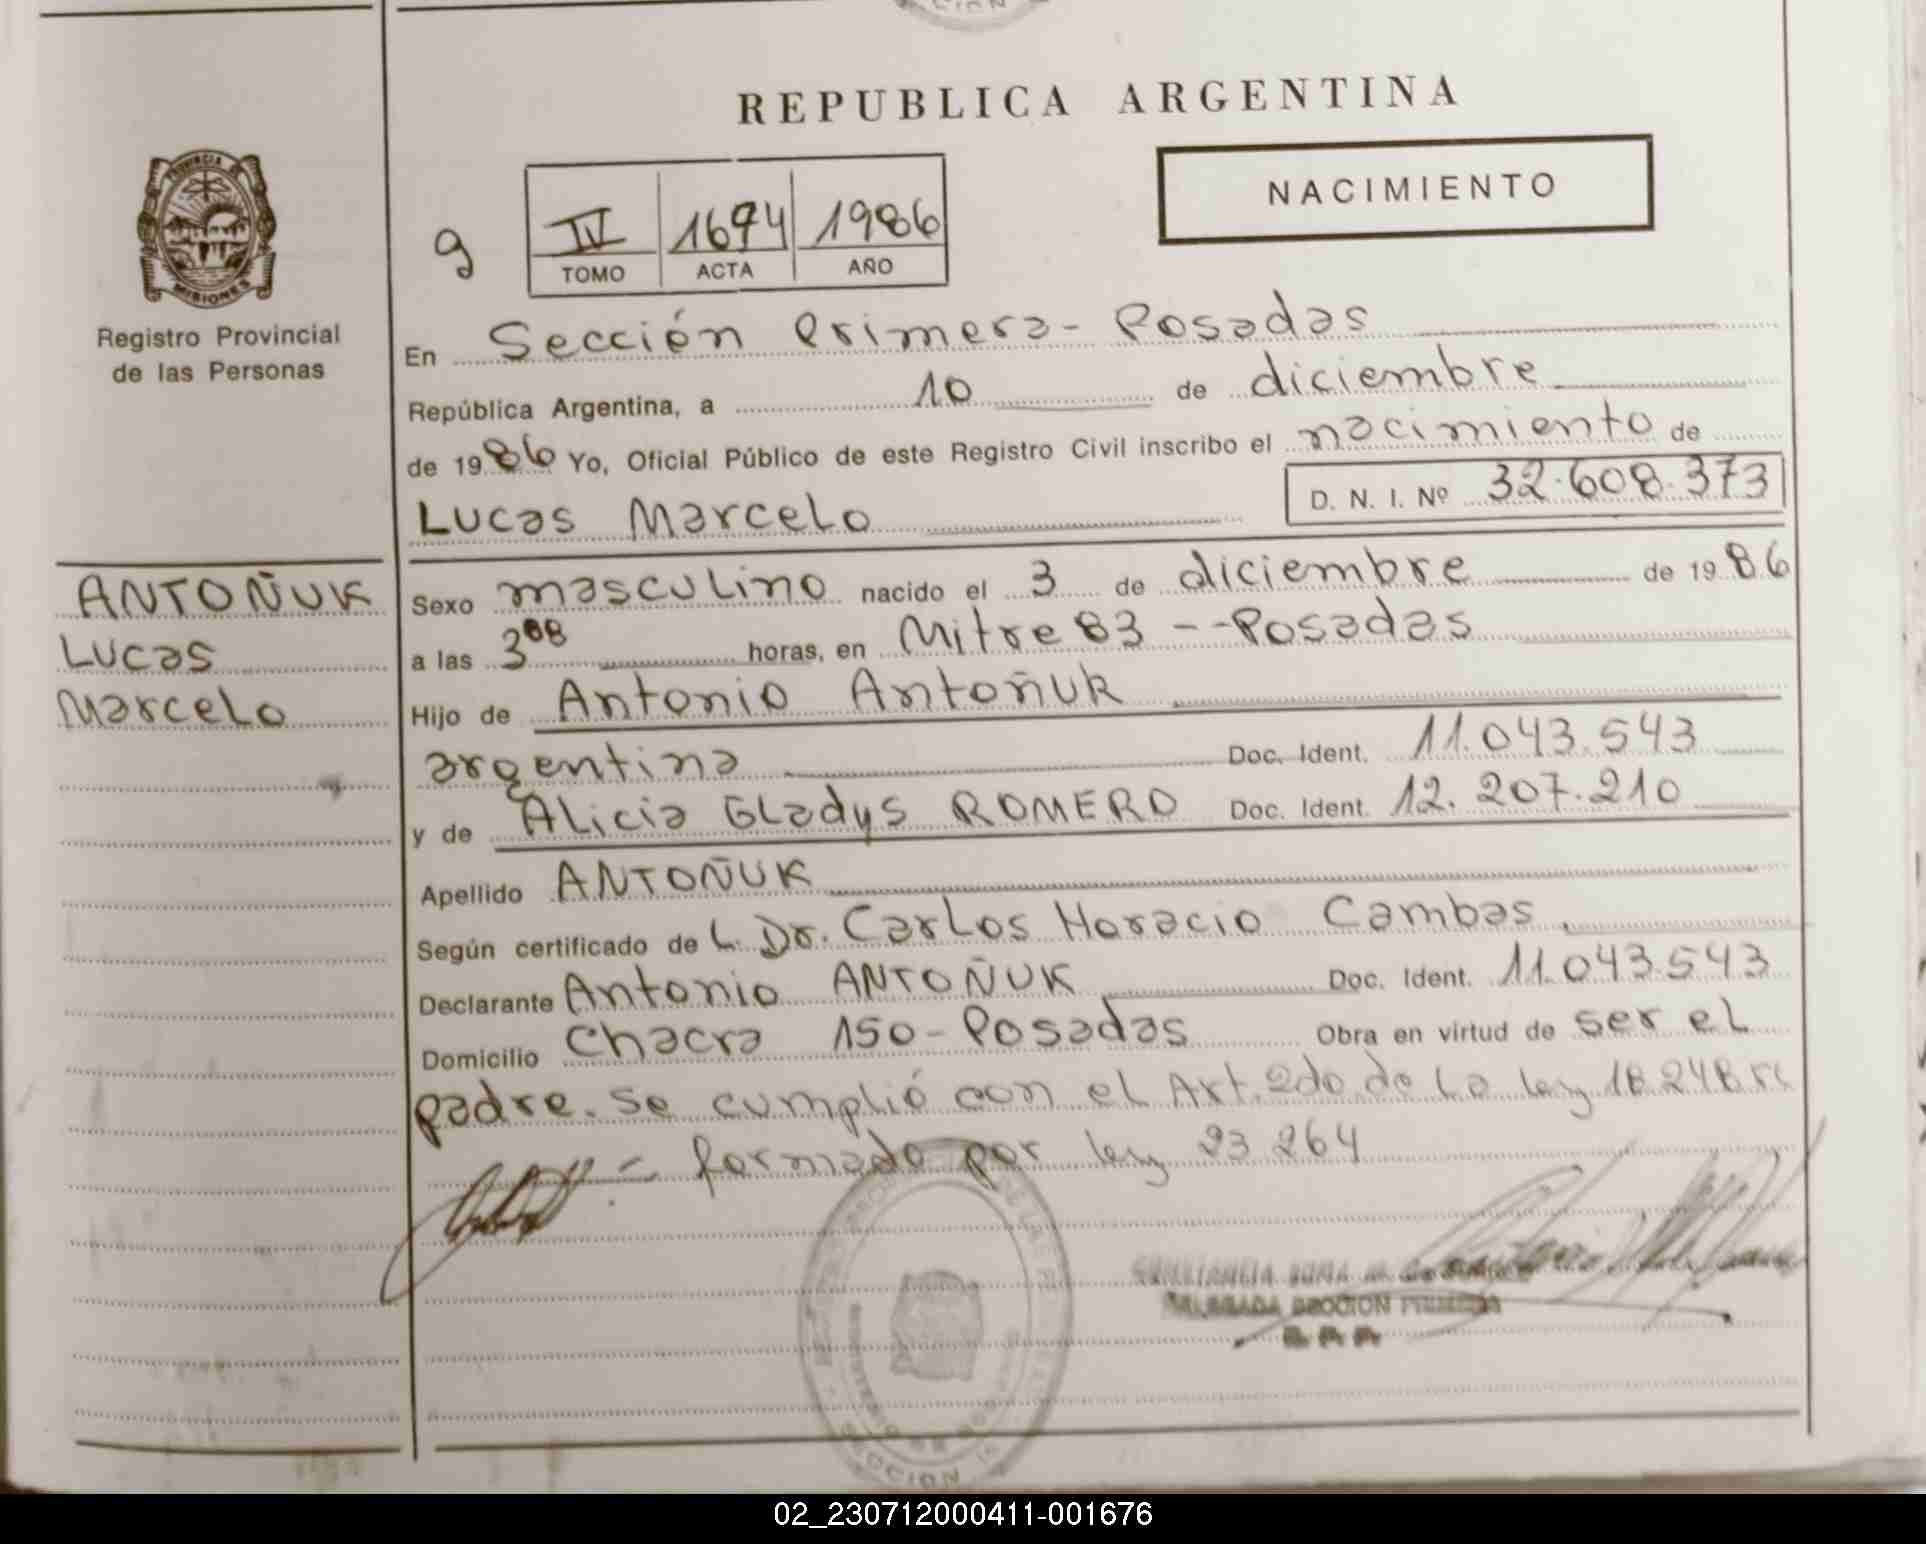 REPUBLICA ARGENTINA
PROVINCIA DE
MISIONES
Registro Provincial
de las Personas
NACIMIENTO
9
IV 1694 1986
TOMO ACTA AÑO
En Sección Primera - Posadas
República Argentina, a 10 de diciembre
de 1986 Yo, Oficial Público de este Registro Civil inscribo el nacimiento de
Lucas Marcelo D. N. I. Nº 32.608.373
ANTOÑUK
Lucas
Marcelo
Sexo masculino nacido el 3 de diciembre de 1986
a las 3 horas, en Mitre 83 -- Posadas
Hijo de Antonio Antoñuk
argentina Doc. Ident. 11.043.543
y de Alicia Gladys ROMERO Doc. Ident. 12.207.210
Apellido ANTOÑUK
Según certificado de L. Dr. Carlos Horacio Cambas
Declarante Antonio ANTOÑUK Doc. Ident. 11.043.543
Domicilio Chacra 150 - Posadas Obra en virtud de ser el
padre. Se cumplió con el Art. 2do. de la ley 18.248 re
formado por ley 23264
DELEGADA SECCION PRIMERA
02_230712000411-001676